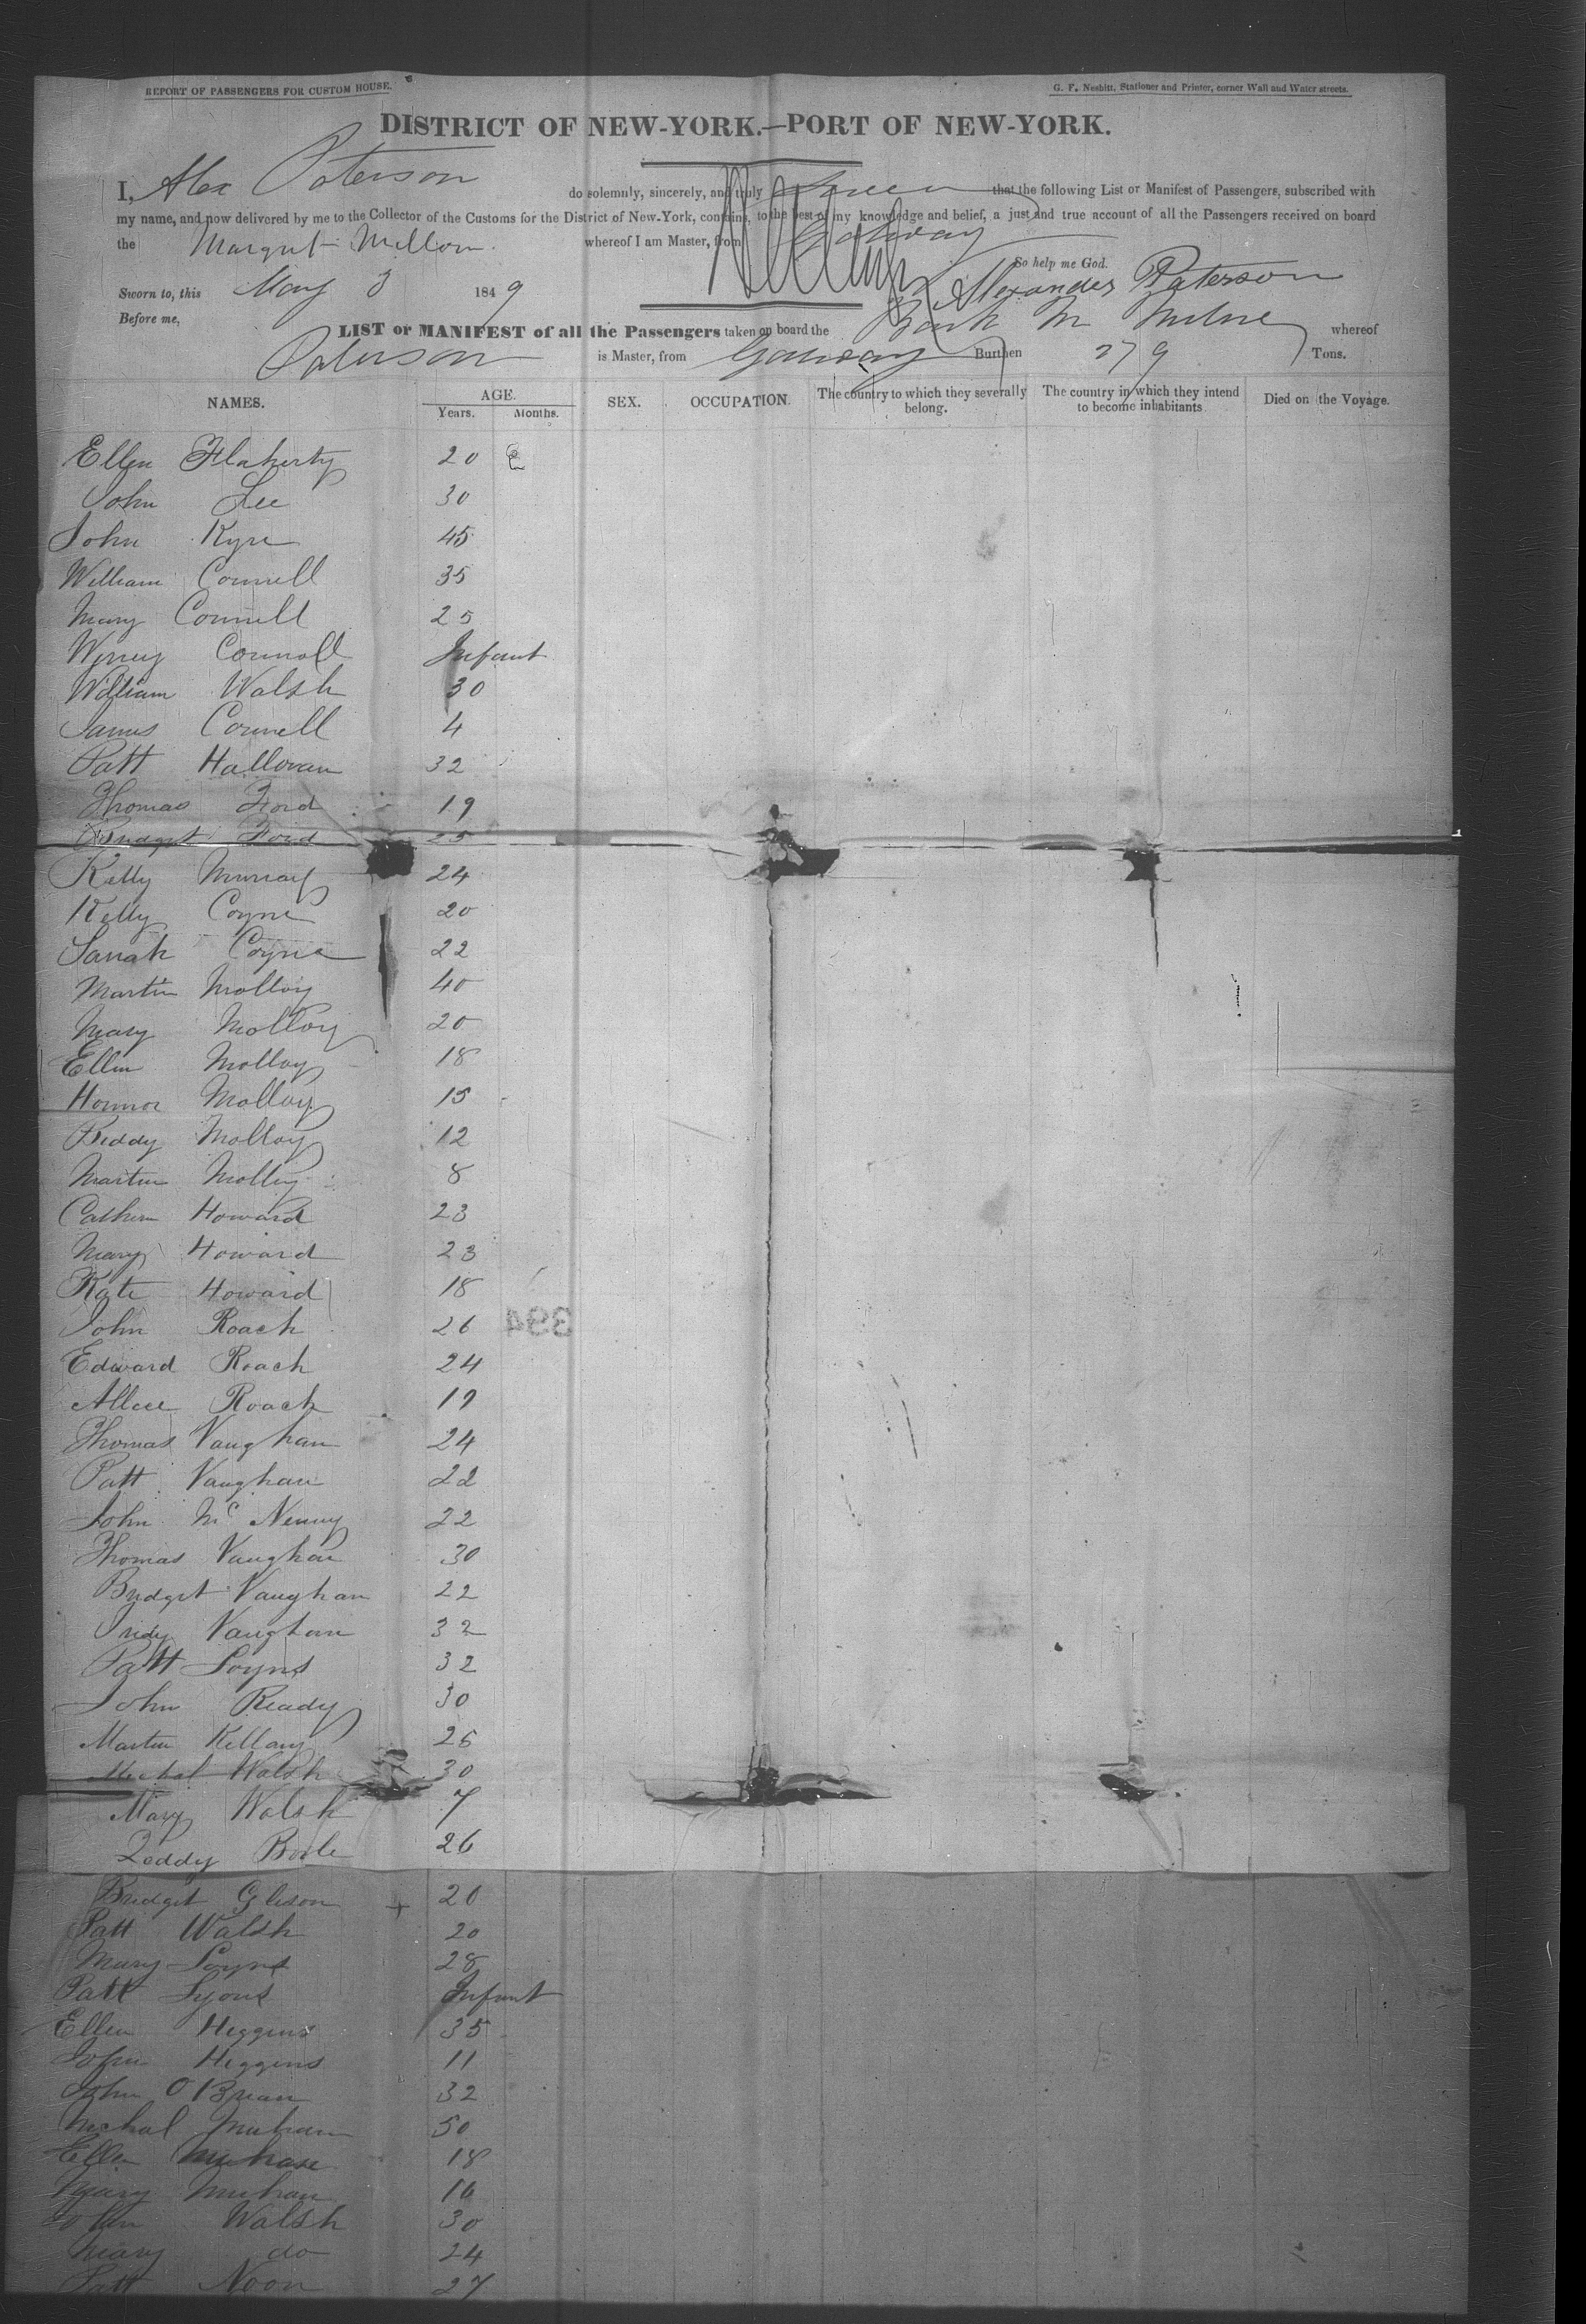 REPORT OF PASSENGERS FOR CUSTOM HOUSE.
G. F. Nesbitt, Stationer and Printer, corner Wall and Water streets.
DISTRICT OF NEW-YORK.—PORT OF NEW-YORK.
I, Alex Paterson do solemnly, sincerely, and truly Swear that the following List or Manifest of Passengers, subscribed with
my name, and now delivered by me to the Collector of the Customs for the District of New-York, contains, to the best of my knowledge and belief, a just and true account of all the Passengers received on board
the Margrut whereof I am Master, from Galway
So help me God.
Sworn to, this May 3 1849 Alexander Paterson
Before me,
LIST or MANIFEST of all the Passengers taken on board the Bark M Milne whereof
Paterson is Master, from Galway Burthen 279 Tons.
NAMES. AGE. Years. Months. SEX. OCCUPATION. The country to which they severally belong. The country in which they intend to become inhabitants Died on the Voyage.
Ellen Flaherty 20
John Lee 30
John Kyne 45
William Connell 35
Mary Connell 25
Connell Infant
William Walsh 30
James Connell 4
Patt Halloran 32
Thomas Ford 19
Bridget Ford 25
Kelly Murray 24
Kelly Coyne 20
Sarrah Coyne 22
Martin Molloy 40
Mary Molloy 20
Ellen Molloy 18
Honnor Molloy 15
Biddy Molloy 12
Martin Molloy 8
Cathern Howard 23
Mary Howard 23
Kate Howard 18
John Roach 26
394
Edward Roach 24
Allice Roach 19
Thomas Vaughan 24
Patt Vaughan 22
John Mc Nenny 22
Thomas Vaughan 30
Bridget Vaughan 22
Vaughan 32
Patt Loyns 32
John Ready 30
Martin Kellary 25
Michal Walsh 30
Mary Walsh 7
Boile 26
Bridget Gleson + 20
Patt Walsh 20
Mary Loyns 28
Patt Lyons Infant
Ellen Higgins 35
John Higgins 11
John O Brian 32
Michal 50
Ellen 18
Mary 16
John Walsh 30
Mary do 24
Patt Noon 27